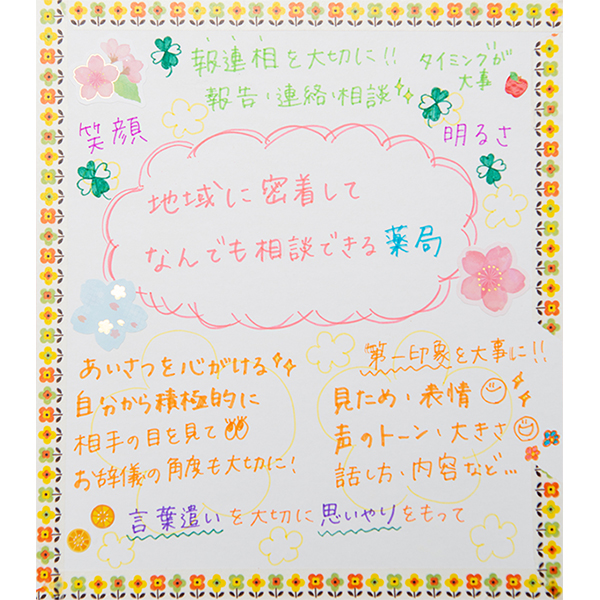 報連相を大切に!!
タイミングが
大事
報告・連絡・相談
笑顔
明るさ
地域に密着して
なんでも相談できる薬局
あいさつを心がける
自分から積極的に
相手の目を見て
お辞儀の角度も大切に!
第一印象を大事に!!
見ため・表情
声のトーン・大きさ
話し方・内容など...
言葉遣いを大切に思いやりをもって